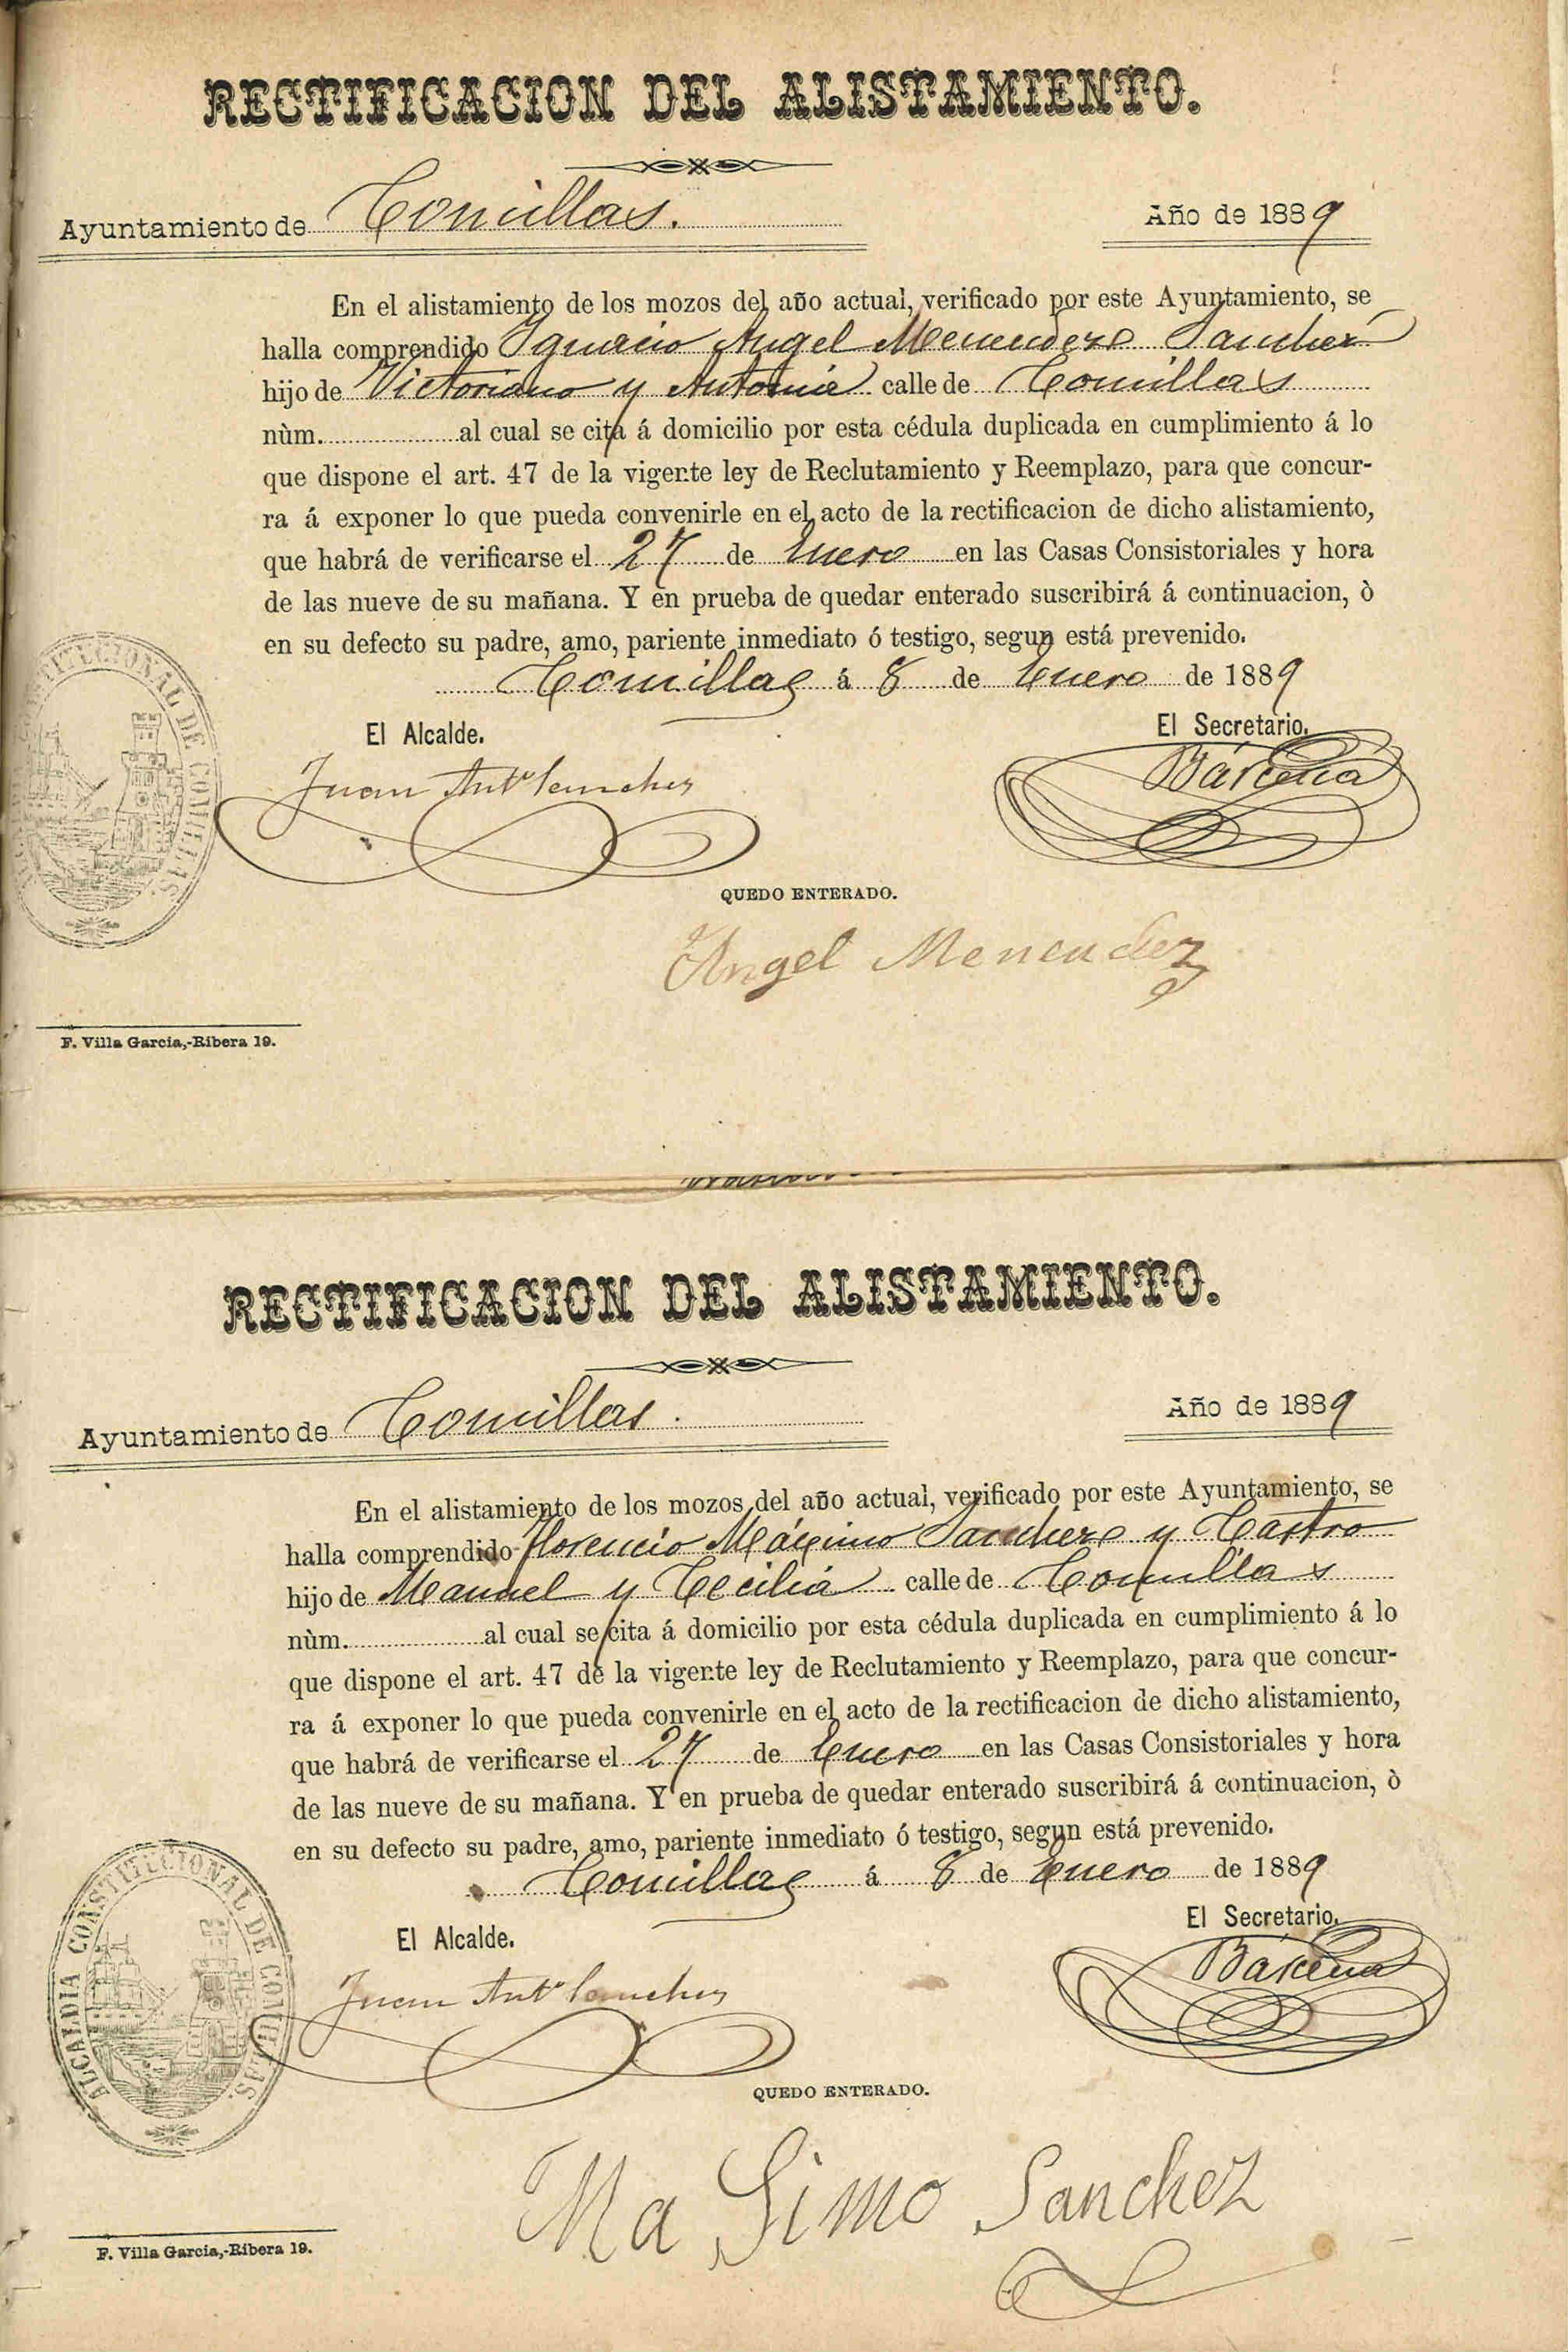 RECTIFICACION DEL ALISTAMIENTO.
Ayuntamiento de Comillas. Año de 1889
En el alistamiento de los mozos del año actual, verificado por este Ayuntamiento, se
halla comprendido Ignacio Angel Menendez Sanchez
hijo de Victoriano y Antonia calle de Comillas
nùm. al cual se cita á domicilio por esta cédula duplicada en cumplimiento á lo
que dispone el art. 47 de la vigente ley de Reclutamiento y Reemplazo, para que concur-
ra á exponer lo que pueda convenirle en el acto de la rectificacion de dicho alistamiento,
que habrá de verificarse el 27 de Enero en las Casas Consistoriales y hora
de las nueve de su mañana. Y en prueba de quedar enterado suscribirá á continuacion, ò
en su defecto su padre, amo, pariente inmediato ó testigo, segun está prevenido.
Comillas á 8 de Enero de 1889
El Alcalde. El Secretario.
Juan Antº Sanchez Bárcena
QUEDO ENTERADO.
Angel Menendez
F. Villa Garcia,-Ribera 19.
RECTIFICACION DEL ALISTAMIENTO.
Ayuntamiento de Comillas. Año de 1889
En el alistamiento de los mozos del año actual, verificado por este Ayuntamiento, se
halla comprendido Florencio Máximo Sanchez y Castro
hijo de Manuel y Cecilia calle de Comillas
nùm. al cual se cita á domicilio por esta cédula duplicada en cumplimiento á lo
que dispone el art. 47 de la vigente ley de Reclutamiento y Reemplazo, para que concur-
ra á exponer lo que pueda convenirle en el acto de la rectificacion de dicho alistamiento,
que habrá de verificarse el 27 de Enero en las Casas Consistoriales y hora
de las nueve de su mañana. Y en prueba de quedar enterado suscribirá á continuacion, ò
en su defecto su padre, amo, pariente inmediato ó testigo, segun está prevenido.
Comillas á 8 de Enero de 1889
ALCALDIA CONSTITUCIONAL DE COMILLAS.
El Alcalde. El Secretario.
Juan Antº Sanchez Bárcena
QUEDO ENTERADO.
Ma Simo Sanchez
F. Villa Garcia,-Ribera 19.